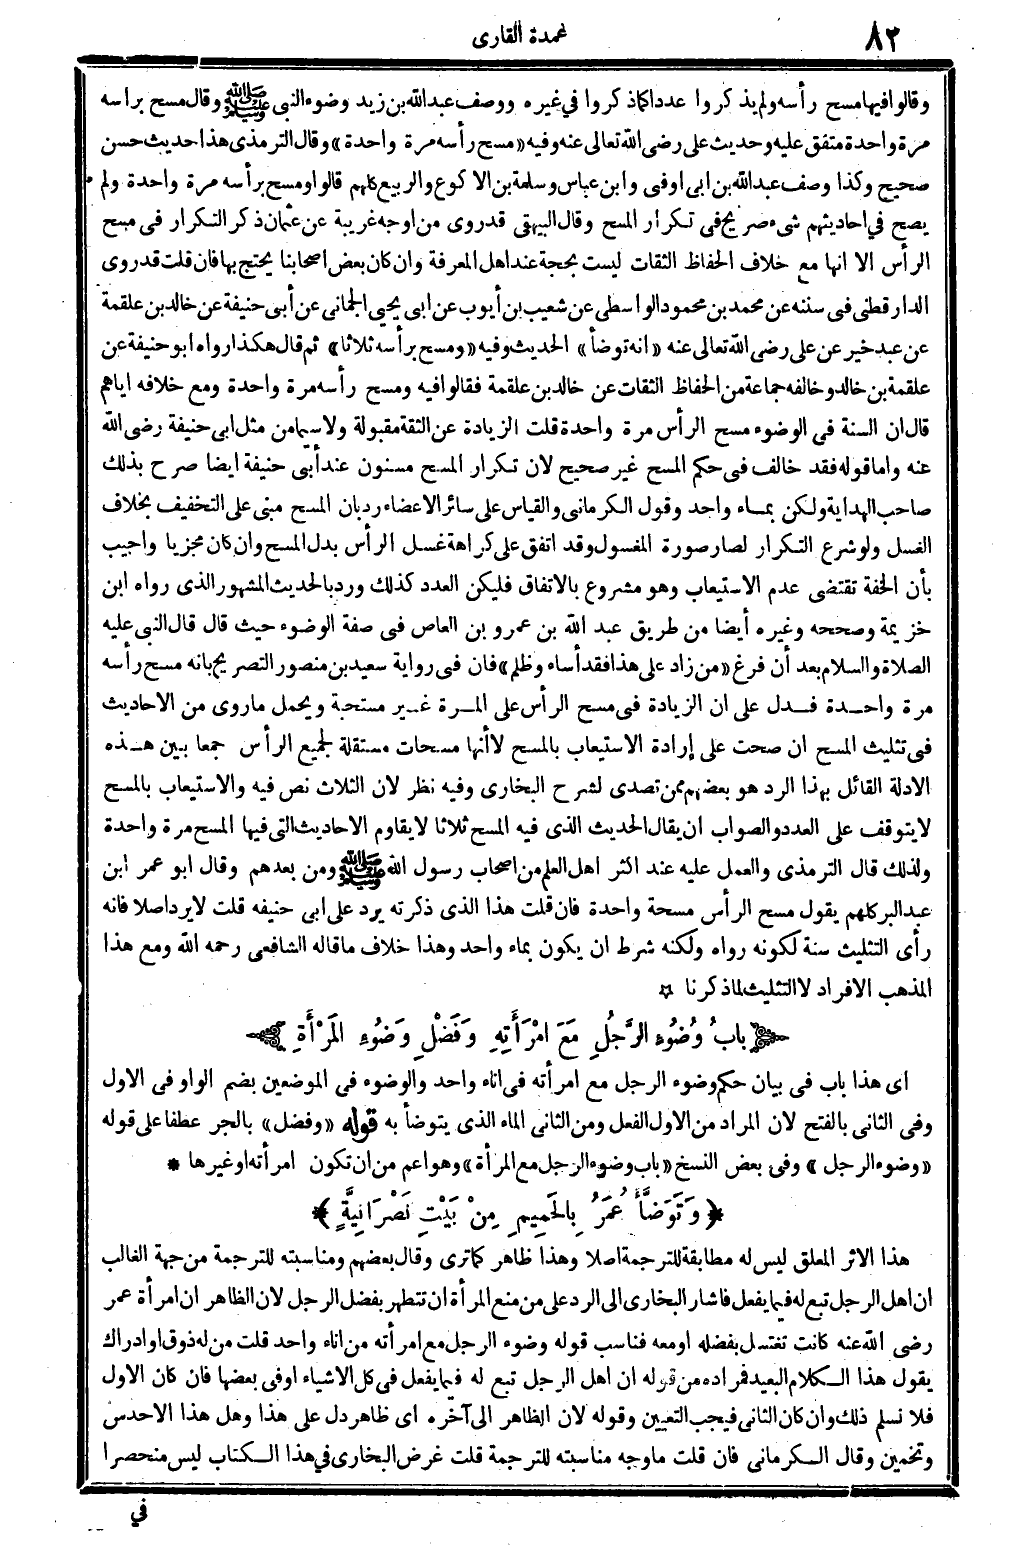 ٨٢
عمدة القارى
وقالوا فيها مسح رأسه ولم يذكروا عددا كما ذكروا في غيره ووصف عبد الله بن زيد وضوء النبى ﷺ وقال مسح براسه
مرة واحدة متفق عليه وحديث على رضى الله تعالى عنه وفيه «مسح رأسه مرة واحدة» وقال الترمذى هذا حديث حسن
صحيح وكذا وصف عبد الله بن ابى اوفى وابن عباس وسلمة بن الاكوع والربيع كلهم قالوا ومسح برأسه مرة واحدة ولم
يصح في احاديثهم شىء صريح فى تكرار المسح وقال البيهقى قد روى من اوجه غريبة عن عثمان ذكر التكرار فى مسح
الرأس الا انها مع خلاف الحفاظ الثقات ليست بحجة عند اهل المعرفة وان كان بعض اصحابنا يحتج بها فان قلت قد روى
الدارقطنى فى سننه عن محمد بن محمود الواسطى عن شعيب بن أيوب عن ابى يحيى الحمانى عن أبى حنيفة عن خالد بن علقمة
عن عبد خير عن على رضى الله تعالى عنه «انه توضأ» الحديث وفيه «ومسح برأسه ثلاثا» ثم قال هكذا رواه ابو حنيفة عن
علقمة بن خالد وخالفه جماعة من الحفاظ الثقات عن خالد بن علقمة فقالوا فيه ومسح رأسه مرة واحدة ومع خلافه اياهم
قال ان السنة فى الوضوء مسح الرأس مرة واحدة قلت الزيادة عن الثقة مقبولة ولا سيما من مثل ابى حنيفة رضى الله
عنه واما قوله فقد خالف فى حكم المسح غير صحيح لان تكرار المسح مسنون عند أبى حنيفة ايضا صرح بذلك
صاحب الهداية ولكن بماء واحد وقول الكرمانى والقياس على سائر الاعضاء رد بان المسح مبنى على التخفيف بخلاف
الغسل ولو شرع التكرار لصار صورة المغسول وقد اتفق على كراهة غسل الرأس بدل المسح وان كان مجزيا واجيب
بأن الخفة تقتضى عدم الاستيعاب وهو مشروع بالاتفاق فليكن العدد كذلك ورد بالحديث المشهور الذى رواه ابن
خزيمة وصححه وغيره أيضا من طريق عبد الله بن عمرو بن العاص فى صفة الوضوء حيث قال قال النبى عليه
الصلاة والسلام بعد أن فرغ «من زاد على هذا فقد أساء وظلم» فان فى رواية سعيد بن منصور التصريح بانه مسح رأسه
مرة واحدة فدل على ان الزيادة فى مسح الرأس على المرة غير مستحبة ويحمل ما روى من الاحاديث
فى تثليث المسح ان صحت على إرادة الاستيعاب بالمسح لا أنها مسحات مستقلة لجميع الرأس جمعا بين هذه
الادلة القائل بهذا الرد هو بعضهم ممن تصدى لشرح البخارى وفيه نظر لان الثلاث نص فيه والاستيعاب بالمسح
لا يتوقف على العدد والصواب ان يقال الحديث الذى فيه المسح ثلاثا لا يقاوم الاحاديث التى فيها المسح مرة واحدة
ولذلك قال الترمذى والعمل عليه عند اكثر اهل العلم من اصحاب رسول الله ﷺ ومن بعدهم وقال ابو عمر ابن
عبد البر كلهم يقول مسح الرأس مسحة واحدة فان قلت هذا الذى ذكرته يرد على ابى حنيفه قلت لا يرد اصلا فانه
رأى التثليث سنة لكونه رواه ولكنه شرط ان يكون بماء واحد وهذا خلاف ما قاله الشافعى رحمه الله ومع هذا
المذهب الافراد لا التثليث لما ذكرنا ☆
﴿ بابُ وُضُوءِ الرَّجُلِ مَعَ امْرَأَتِهِ وَفَضْلِ وَضُوءِ المَرْأَةِ ﴾
اى هذا باب فى بيان حكم وضوء الرجل مع امرأته فى اناء واحد والوضوء فى الموضعين بضم الواو فى الاول
وفى الثانى بالفتح لان المراد من الاول الفعل ومن الثانى الماء الذى يتوضأ به قوله «وفضل» بالجر عطفا على قوله
«وضوء الرجل» وفى بعض النسخ «باب وضوء الرجل مع المرأة» وهو اعم من ان تكون امرأته او غيرها *
﴿ وَتَوَضَّأَ عُمَرُ بِالحَمِيمِ مِنْ بَيْتِ نَصْرَانِيَّةٍ ﴾
هذا الاثر المعلق ليس له مطابقة للترجمة اصلا وهذا ظاهر كما ترى وقال بعضهم ومناسبته للترجمة من جهة الغالب
ان اهل الرجل تبع له فيما يفعل فاشار البخارى الى الرد على من منع المرأة ان تتطهر بفضل الرجل لان الظاهر ان امرأة عمر
رضى الله عنه كانت تغتسل بفضله او معه فناسب قوله وضوء الرجل مع امرأته من اناء واحد قلت من له ذوق او ادراك
يقول هذا الكلام البعيد فمراده من قوله ان اهل الرجل تبع له فيما يفعل فى كل الاشياء او فى بعضها فان كان الاول
فلا نسلم ذلك وان كان الثانى فيجب التعيين وقوله لان الظاهر الى آخره اى ظاهر دل على هذا وهل هذا الا حدس
وتخمين وقال الكرمانى فان قلت ما وجه مناسبته للترجمة قلت غرض البخارى في هذا الكتاب ليس منحصرا
في